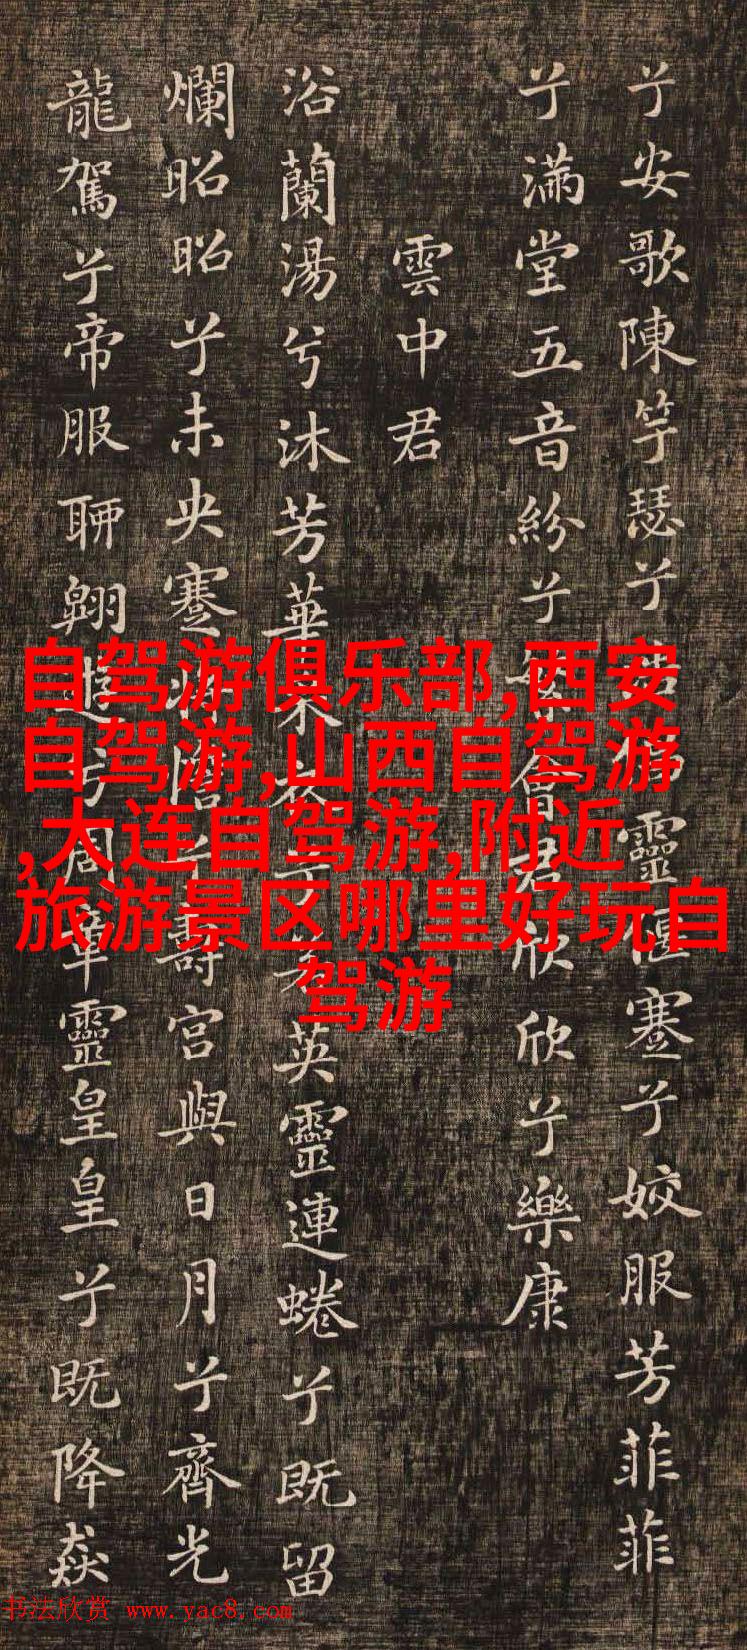 兮安歌陳竽瑟兮浩倡靈偃蹇兮姣服芳菲菲
兮滿堂五音紛兮繁會君欣欣兮樂康
雲中君
浴蘭湯兮沐芳華采衣兮若英靈連蜷兮既留
爛昭昭兮未央蹇將憺兮壽宮與日月兮齊光
龍駕兮帝服聊翱遊兮周章靈皇皇兮既降猋
自驾游俱乐部,西安
自驾游,山西自驾游
,大连自驾游,附近
旅游景区哪里好玩自
驾游
书法欣赏 www.yac8.com